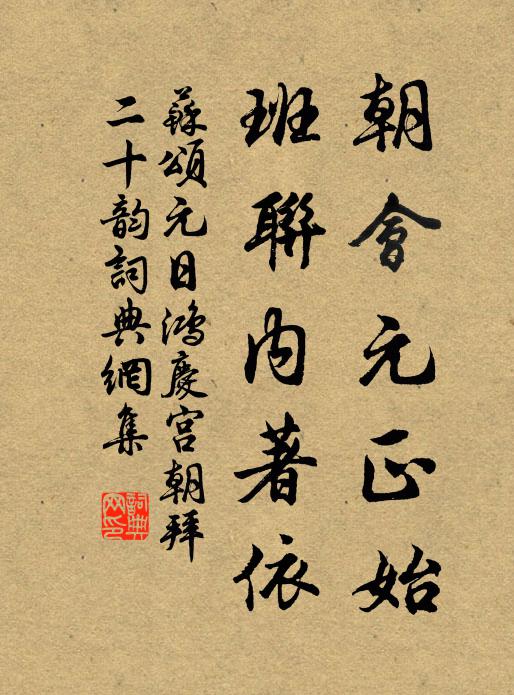 朝會元正始
班聯内著依
蘇頌元日鴻慶宫朝拜
二十韵詞典網集
詞典
网印